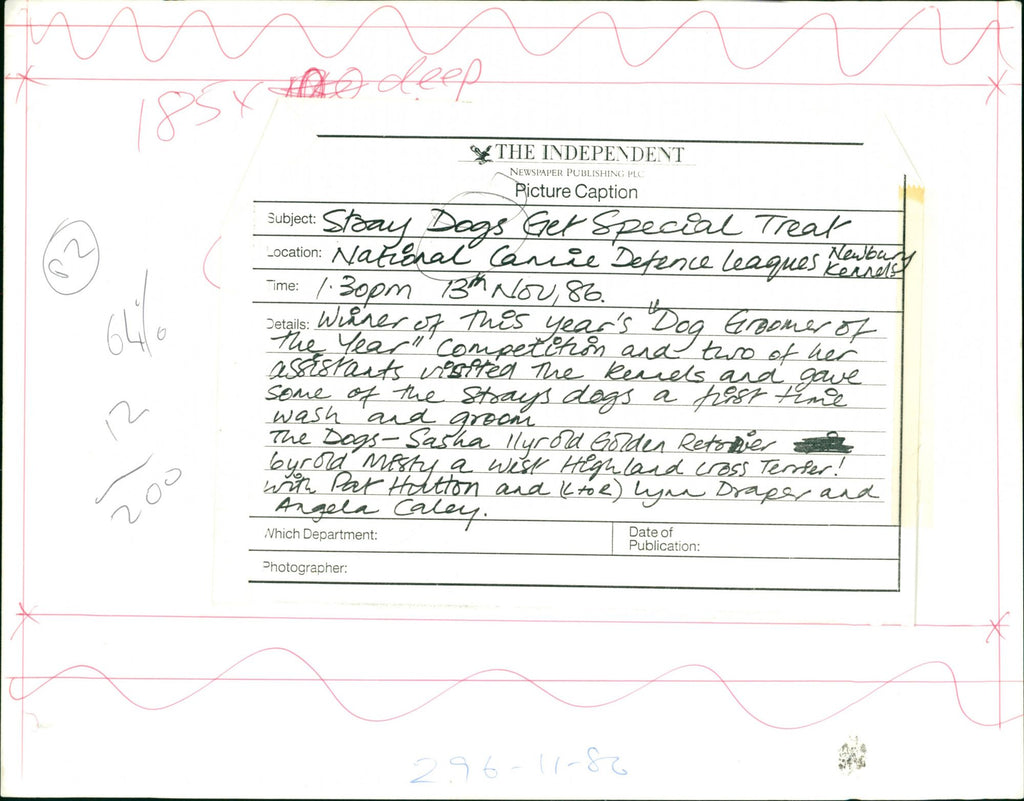 185 x deep
THE INDEPENDENT
NEWSPAPER PUBLISHING PLC
Picture Caption
Subject: Stray Dogs Get Special Treat
Location: National Canine Defence Leagues Newbury Kennels
Time: 1.30pm 13th Nov, 86.
Details: Winner of this year's "Dog Groomer of
the Year" competition and two of her
assistants visited the kennels and gave
some of the strays dogs a first time
wash and groom
The Dogs - Sasha 11yr old Golden Retriever
6yr old Misty a West Highland cross Terrier!
with Pat Hutton and (L to R) Lynn Draper and
Angela Caley.
Which Department:
Date of
Publication:
Photographer:
64%
12
200
296-11-86